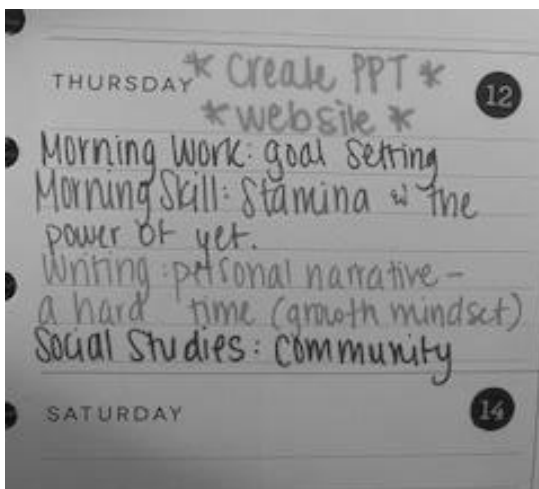 THURSDAY * Create PPT * 12
* website *
Morning Work: goal setting
Morning Skill: Stamina w the
power of yet.
Writing: personal narrative -
a hard time (growth mindset)
Social Studies: Community
SATURDAY 14